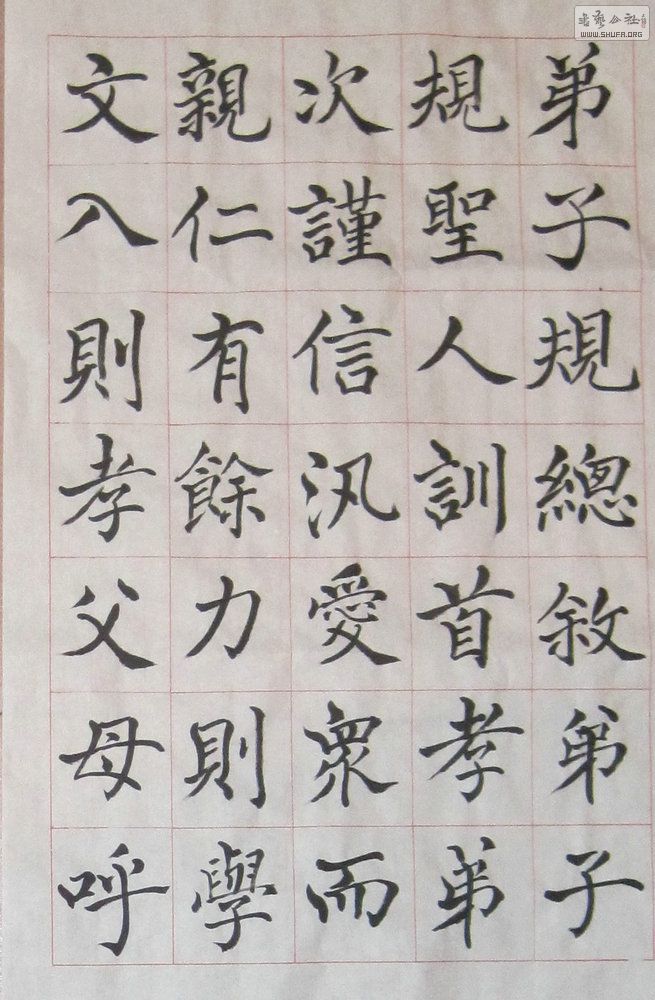 弟子規總敘弟子
規聖人訓首孝弟
次謹信汎愛眾而
親仁有餘力則學
文入則孝父母呼
書藝公社
WWW.SHUFA.ORG